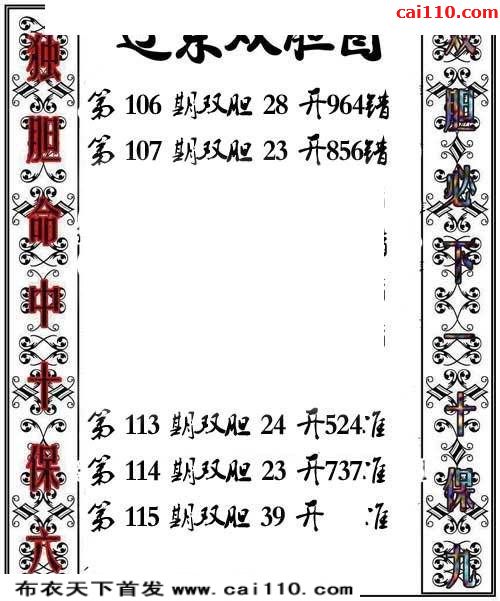 cai110.com
双胆图
独胆命中十保六
第 106 期双胆 28 开964错
第 107 期双胆 23 开856错
第 113 期双胆 24 开524准
第 114 期双胆 23 开737准
第 115 期双胆 39 开 准
双胆必下一十保九
布衣天下首发 www.cai110.com